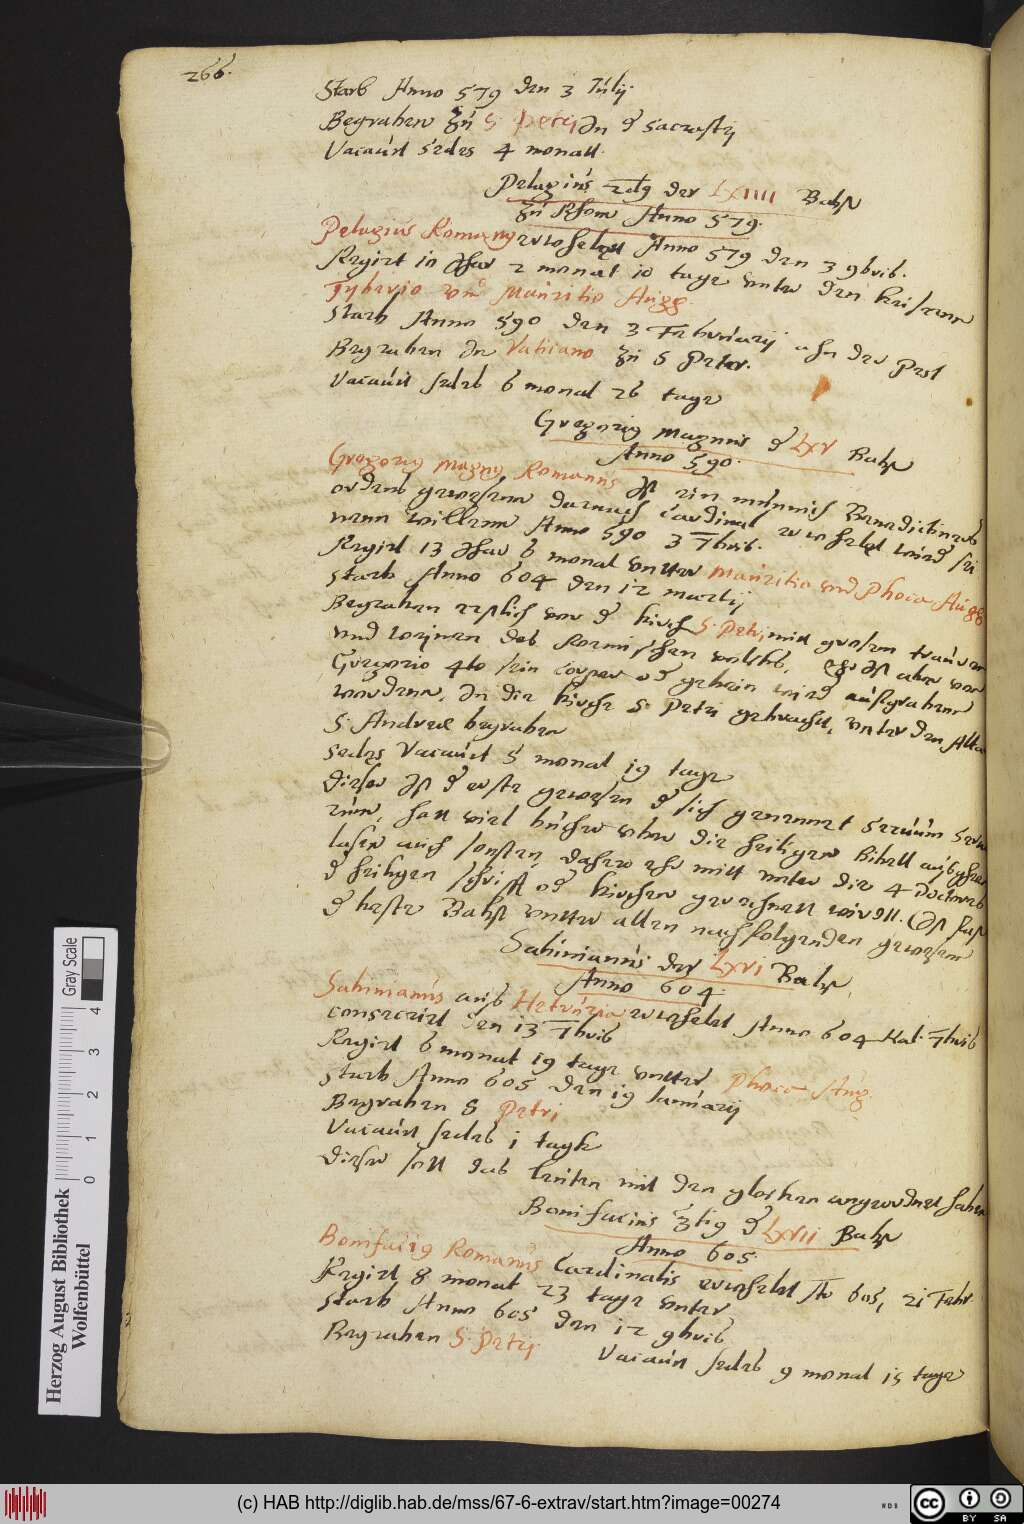 266.
Starb Anno 579 den 3 Julij
Begraben zu S. Petrj in d' Sacrastij
Vacauit Sedes 4 monatt.
Pelagius 2dg der LXIIII Babst
zu Rhom Anno 579.
Pelagius Romanus erwehlett Anno 579 den 3 9bris.
Regirt 10 Jhar 2 monat 10 tage unter den keiseren
Tyberio und Mauritio Augg.
Starb Anno 590 den 3 Februarij ahn der Pest
Begraben In Vaticano zu S Peter.
Vacauit sedes 6 monat 26 tage
Gregorig Magnus d' LXV Babst
Anno 590.
Gregorig Magng Romanus Ist ein munnich Benedictiners
ordens gewesenn darnach Cardinal erwehlet wird sei
nenn willenn Anno 590 3 7bris.
Regirt 13 Jhar 6 monat untter Mauritio und Phoca Augg
Starb Anno 604 den 12 Martij
Begraben erstlich vor d' kirch S. Petri mit grosem trauren
und weijnen des Roemischen volcks, Er Ist aber von
Gregorio 4to sein Corper od gebein wird aussgrabenn
wordenn, In die kirche S. Petri gebracht, unter den Alta
S. Andreae begraben
Sedes Vacauit 5 monat 19 tage
Dieser Ist d' erste gewesen d' sich genennet Seruum Seru
rum, hatt viel bücher uber die heiligen Bibell ausgehen
lasen auch sonsten, daher ehr mitt unter die 4 doctores
d' heiligen schrifft od kirchen gerechnett wirdtt. (Ist fast
d' beste Babst untter allen nachfolgenden gewesenn
Sabinianus der LXVI Babst
Anno 604.
Sabinianus aus Hetruria erwehlet Anno 604 Kal. 7bris
Consecrirt den 13 7bris
Regirt 6 monat 19 tage untter Phoca Aug.
Starb Anno 605 den 19 Januarij
Begraben S Petri
Vacauit sedes 1 tagk
Dieser soll das leuten mit den glocken angeordnet haben
Bonifacius 3tig d' LXVII Babst
Anno 605.
Bonifacig Romanus Cardinalis erwehlet Ao 605, 21 Febr.
Regirt 8 monat 23 tage unter
Starb Anno 605 den 12 9bris
Begraben S. Petrij
Vacauit sedes 9 monat 15 tage
Gray Scale
0 1 2 3 4
Herzog August Bibliothek
Wolfenbüttel
(c) HAB http://diglib.hab.de/mss/67-6-extrav/start.htm?image=00274
WDB
cc BY SA